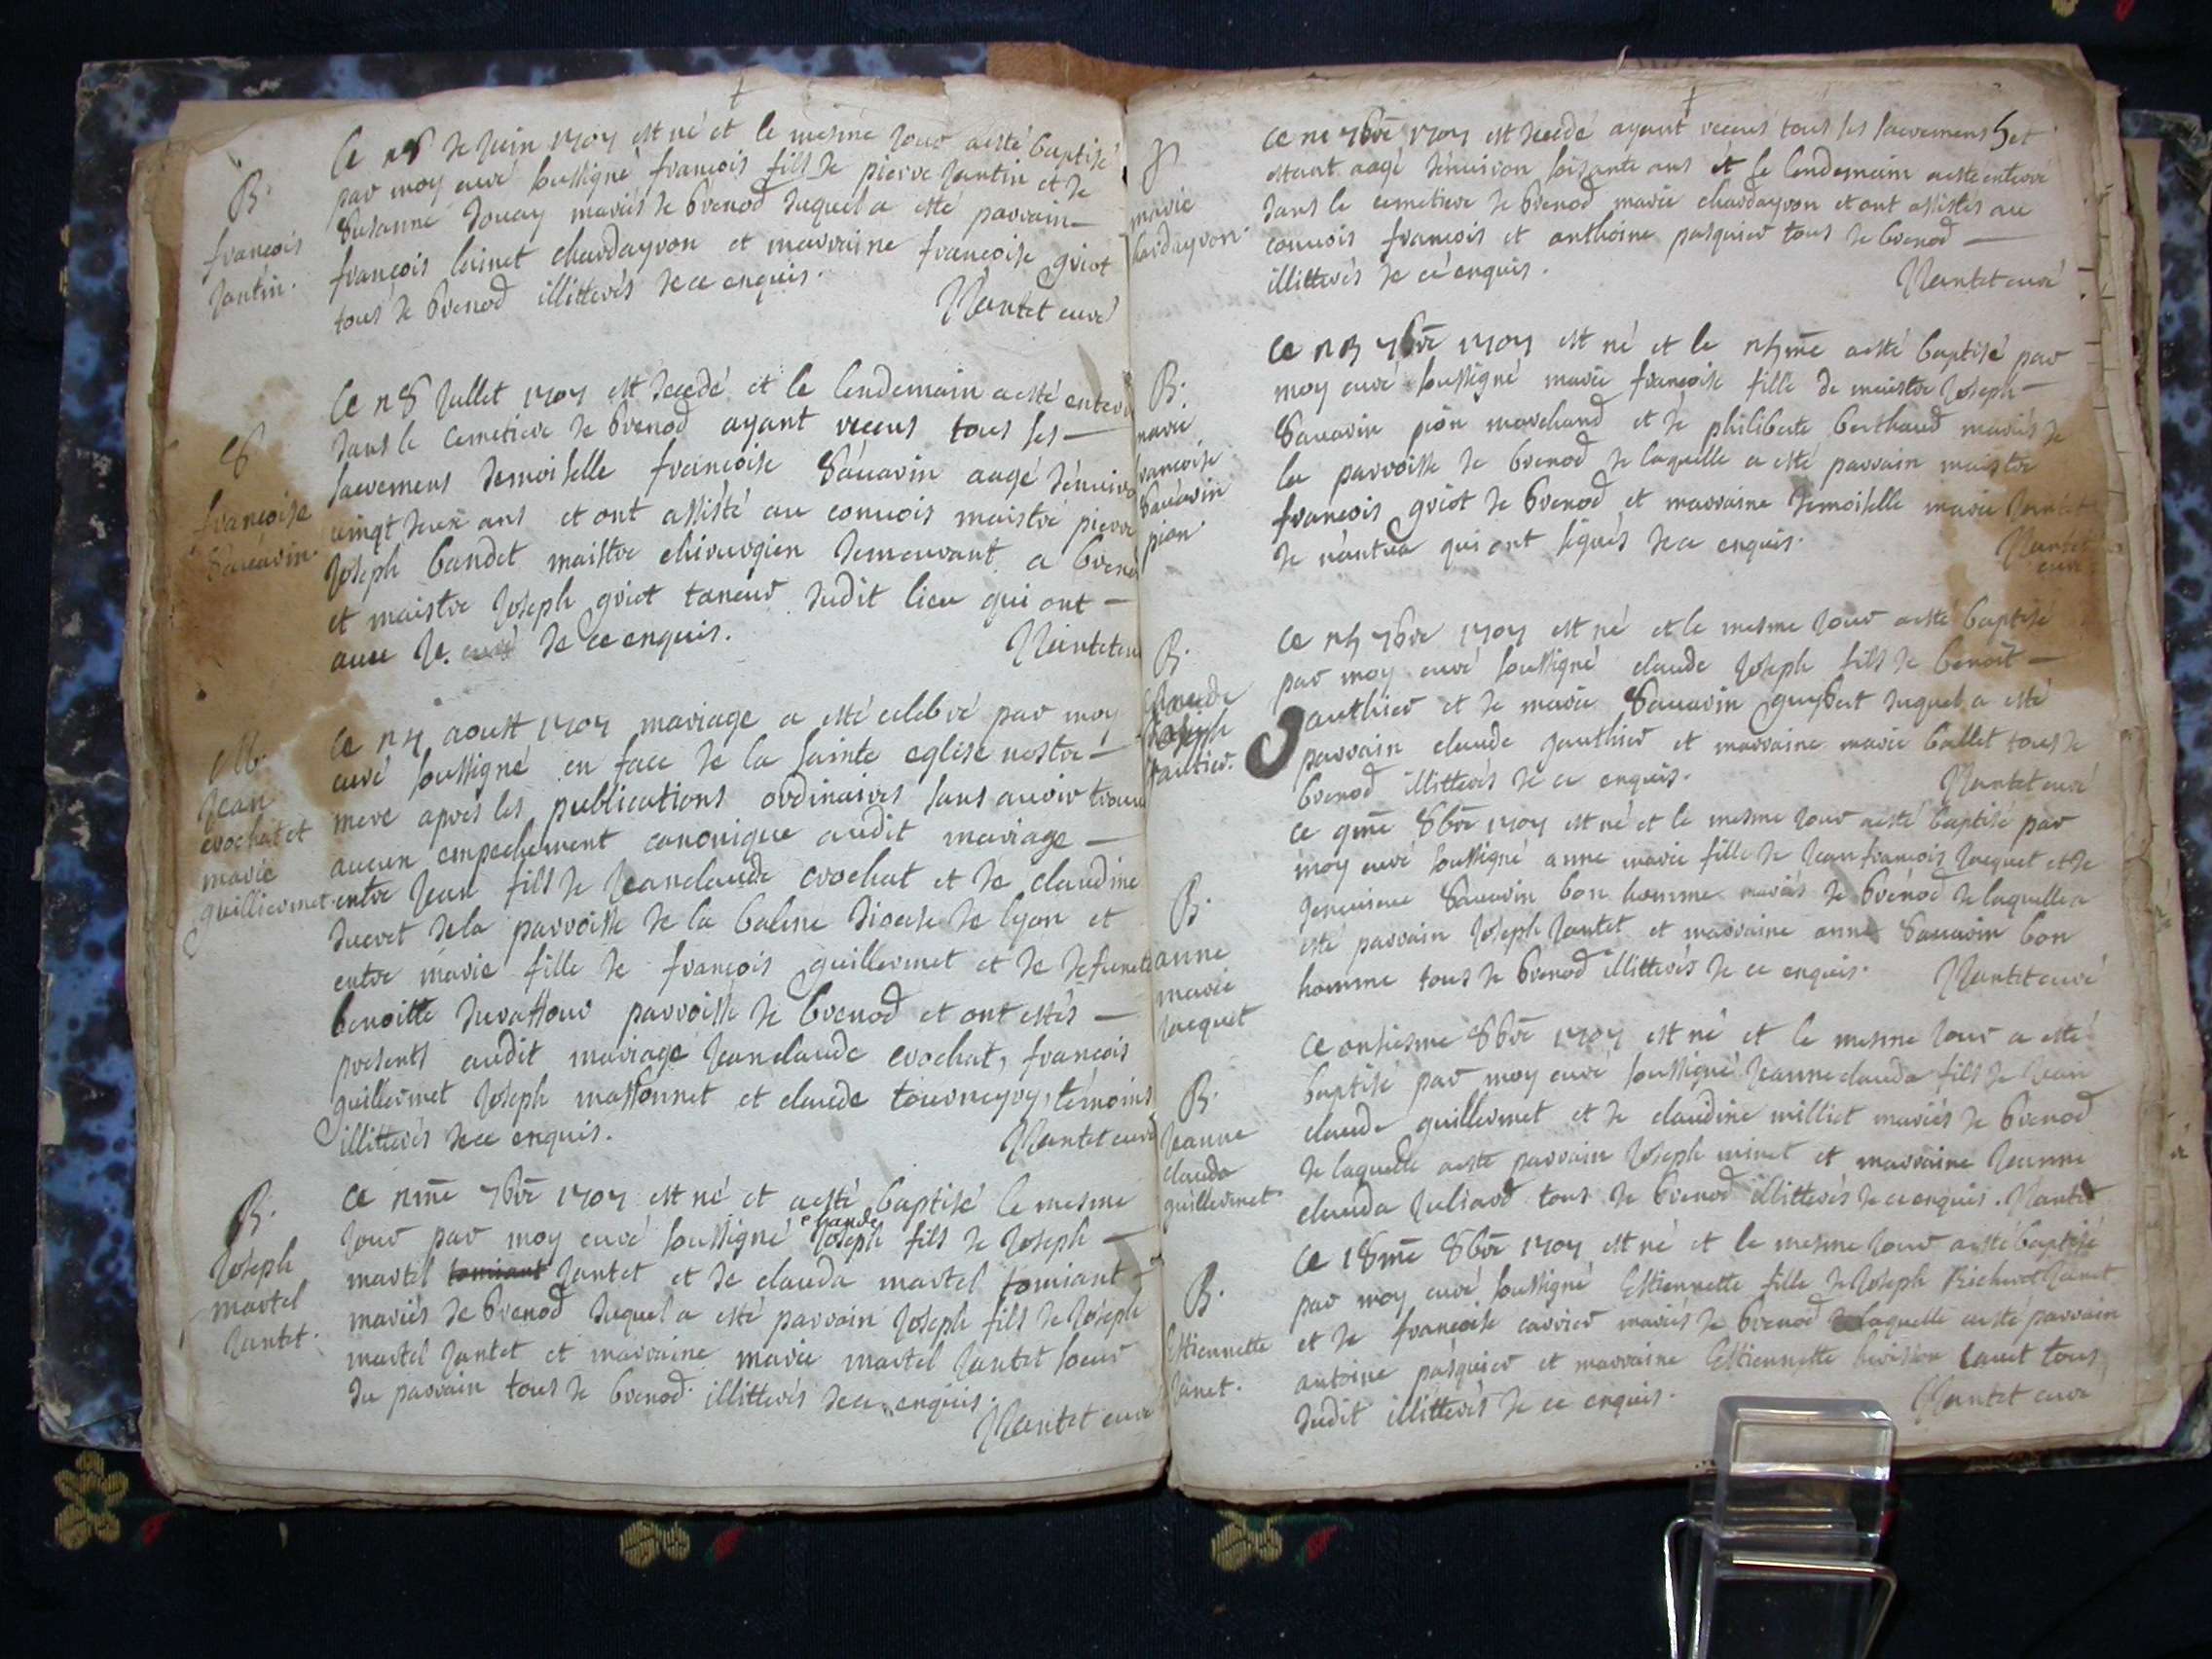 B.
françois
Jantin.
Ce 28 de Juin 1707 est né et le mesme Jour a esté baptisé
par moy curé soussigné françois fils de pierre Jantin et de
Susanne Jouay mariés de brenod duquel a esté parrain
françois Cuinet chardayron et marraine françoise griot
tous de brenod illitterés de ce enquis.
Nantet curé
françoise
Savarin.
Ce 28 Jullet 1707 est decedé et le lendemain a esté enterré
dans le cemetiere de brenod ayant receus tous ses
sacremens demoiselle françoise Savarin aagé d'environ
vingt deux ans et ont assisté au convois maistre pierre
Joseph baudet maistre chirurgien demeurant a brenod
et maistre Joseph griot taneur dudit lieu qui ont
de ce enquis.
Nantet curé
M.
Jean
crochat et
marie
guillermet
Ce 27 aoust 1707 mariage a esté celebré par moy
curé soussigné en face de la sainte eglise nostre
mere apres les publications ordinaires sans avoir trouvé
aucun empechement canonique audit mariage
entre Jean fils de Jeanclaude crochat et de claudine
ducret de la parroisse de la balme diocese de lyon et
entre marie fille de françois guillermet et de defunte
benoitte durassour parroisse de brenod et ont estés
presents audit mariage Jeanclaude crochat, françois
guillermet Joseph massonnet et claude tournayry, témoins
illitterés de ce enquis.
Nantet curé
B.
Joseph
martel
Jantet.
Ce 2me 7bre 1707 est né et a esté baptisé le mesme
claude
Jour par moy curé soussigné Joseph fils de Joseph
martel tomiant Jantet et de clauda martel tomiant
mariés de brenod duquel a esté parrain Joseph fils de Joseph
martel Jantet et marraine marie martel Jantet soeur
du parrain tous de brenod illitterés de ce enquis.
Nantet curé
marie
chardayron
7bre 1707 est decedé ayant receus tous ses sacremens et
estant aagé d'environ soisante ans et le lendemain a esté enterré
dans le cemetiere de brenod marie chardayron et ont assistés au
convois françois et anthoine pasquier tous de brenod
illitterés de ce enquis.
Nantet curé
B.
marie
françoise
Savarin
pion
Ce 23 7bre 1707 est né et le 25me a esté baptisé par
moy curé soussigné marie françoise fille de maistre Joseph
Savarin pion marchand et de philiberte berthaud mariés de
la parroisse de brenod de laquelle a esté parrain maistre
françois griot de brenod et marraine demoiselle marie Nantet
de nantua qui ont signés de ce enquis.
Nantet
curé
B.
Claude
Joseph
Gautier.
Ce 25 7bre 1707 est né et le mesme Jour a esté baptisé
par moy curé soussigné claude Joseph fils de benoit
Gauthier et de marie Savarin guybert duquel a esté
parrain claude gauthier et marraine marie ballet tous de
brenod illitterés de ce enquis.
Nantet curé
B.
anne
marie
Jacquet
Ce 9me 8bre 1707 est né et le mesme Jour a esté baptisé par
moy curé soussigné anne marie fille de Jean françois Jacquet et de
Savarin bon homme mariés de brenod de laquelle a
esté parrain Joseph Jantet et marraine anne Savarin bon
homme tous de brenod illitterés de ce enquis.
Nantet curé
B.
Jeanne
clauda
guillermet.
Ce onsiesme 8bre 1707 est né et le mesme Jour a esté
baptisé par moy curé soussigné Jeanne clauda fils de Jean
claude guillermet et de claudine milliet mariés de brenod
de laquelle a esté parrain Joseph minet et marraine Jeanne
clauda Juliard tous de brenod illitterés de ce enquis. Nantet
B.
Estiennette
Janet.
Ce 18me 8bre 1707 est né et le mesme Jour a esté baptisé
par moy curé soussigné Estiennette fille de Joseph Richerot Janet
et de françoise carrier mariés de brenod de laquelle a esté parrain
antoine pasquier et marraine Estiennette tous
dudit illitterés de ce enquis.
Nantet curé